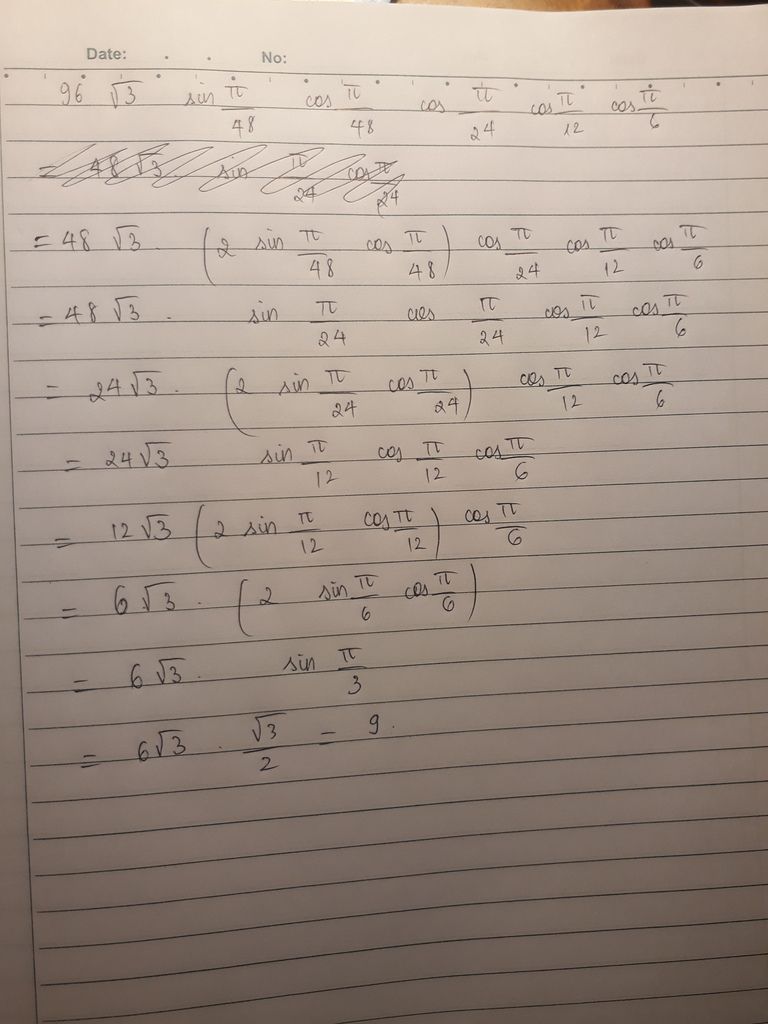 Date: . . No:
96 √3 sin π/48 cos π/48 cos π/24 cos π/12 cos π/6
= 48 √3 sin π/24 cos π/24
= 48 √3 . (2 sin π/48 cos π/48) cos π/24 cos π/12 cos π/6
= 48 √3 . sin π/24 cos π/24 cos π/12 cos π/6
= 24√3 . (2 sin π/24 cos π/24) cos π/12 cos π/6
= 24√3 sin π/12 cos π/12 cos π/6
= 12√3 (2 sin π/12 cos π/12) cos π/6
= 6√3 . (2 sin π/6 cos π/6)
= 6√3 . sin π/3
= 6√3 . √3/2 = 9.